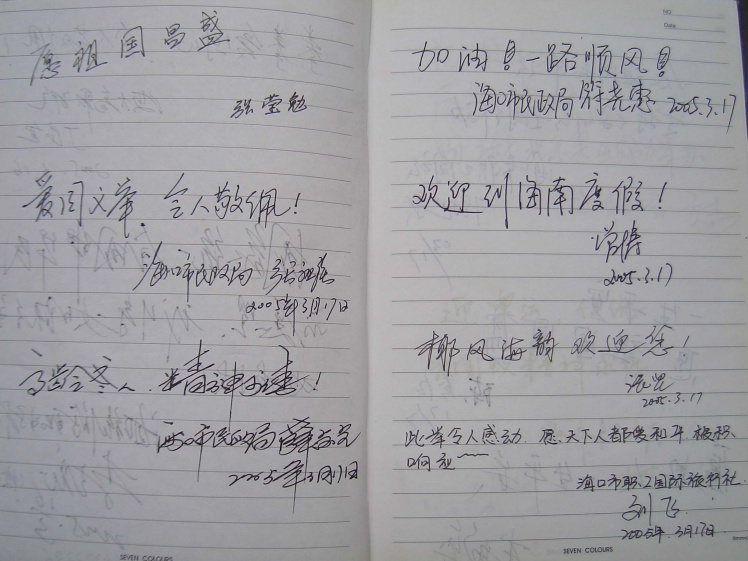 愿祖国昌盛
张莹勉
爱国文章，令人敬佩！
海口市民政局
2005年3月17日
海口市民政局
2005年3月17日
SEVEN COLOURS
NO
Date
加油！一路顺风！
海口市民政局 符尧惠 2005.3.17
欢迎到海南度假！
2005.3.17
椰风海韵欢迎您！
2005.3.17
此举令人感动，愿天下人都爱和平，积极
响应
海口市职工国际旅行社
刘飞
2005年3月17日
SEVEN COLOURS